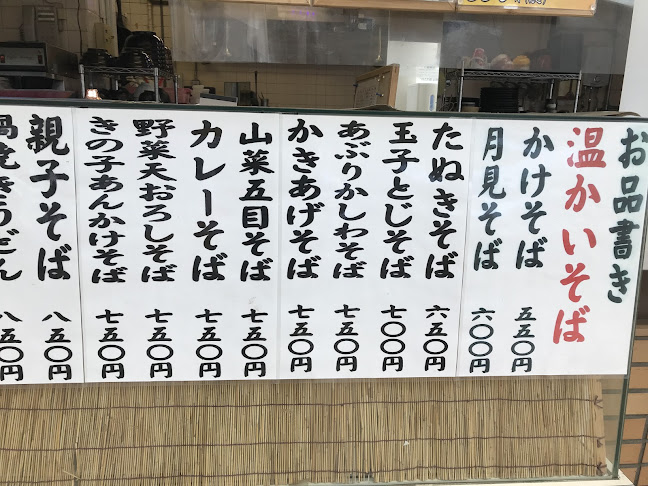 お品書き
温かいそば
かけそば
五五〇円
月見そば
六〇〇円
たぬきそば
六五〇円
玉子とじそば
七〇〇円
あぶりかしわそば
七五〇円
かきあげそば
七五〇円
山菜五目そば
七五〇円
カレーそば
七五〇円
野菜天おろしそば
七五〇円
きの子あんかけそば
七五〇円
親子そば
八五〇円
鍋焼きうどん
八五〇円